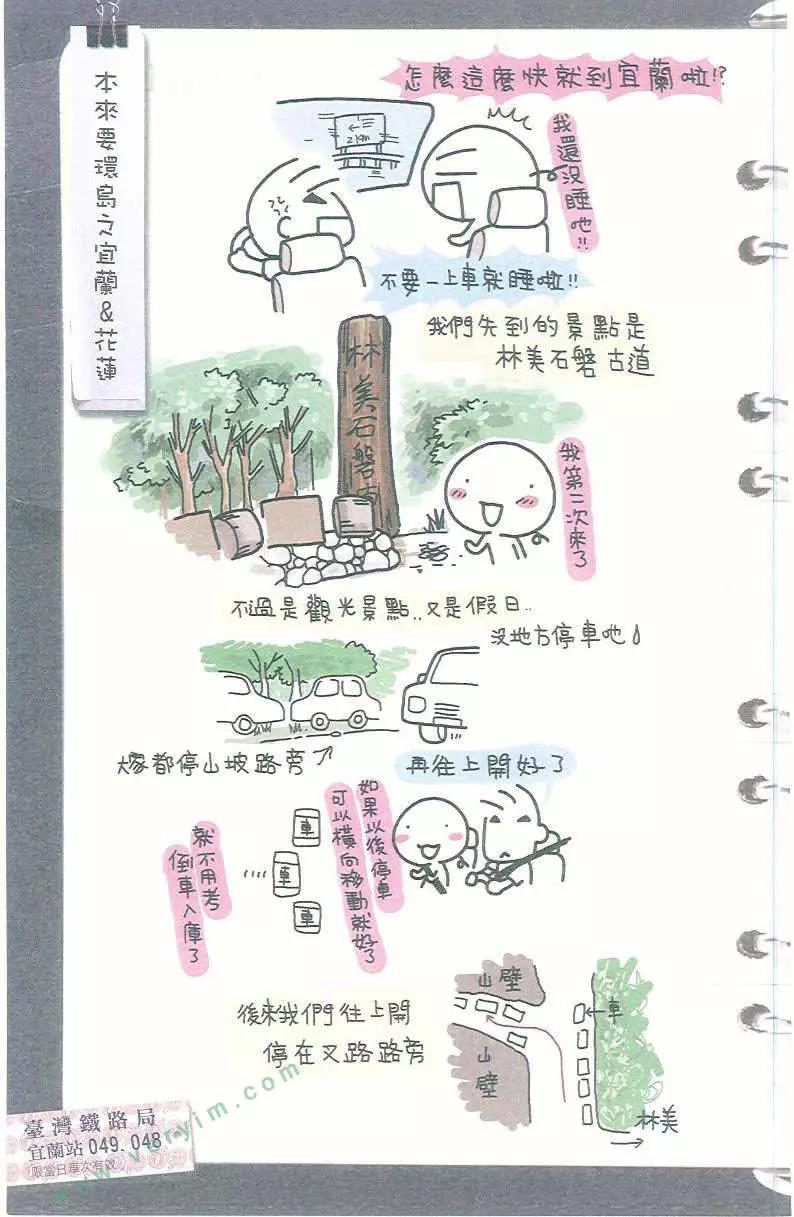 本來要環島之宜蘭&花蓮
怎麼這麼快就到宜蘭啦!?
我還沒睡吔!!
2km
不要一上車就睡啦!!
我們先到的景點是
林美石磐古道
林美石磐古
我第二次來了
不過是觀光景點..又是假日..
沒地方停車吔
大家都停山坡路旁
再往上開好了
如果以後停車
可以橫向移動就好了
就不用考
倒車入庫了
車
車
車
後來我們往上開
停在叉路路旁
山壁
山壁
車
林美
臺灣鐵路局
宜蘭站 049.048
限當日車次有效